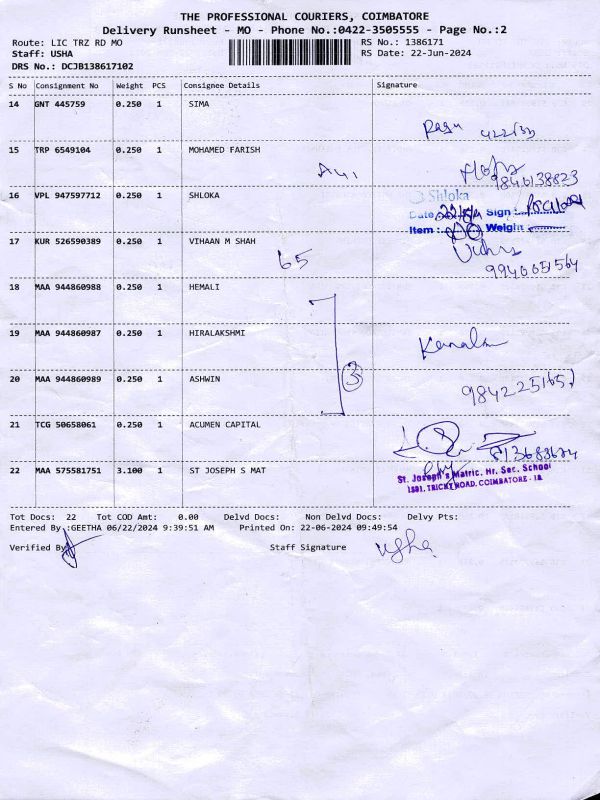 THE PROFESSIONAL COURIERS, COIMBATORE
Delivery Runsheet - MO - Phone No.:0422-3505555 - Page No.:2
Route: LIC TRZ RD MO RS No.: 1386171
Staff: USHA RS Date: 22-Jun-2024
DRS No.: DCJB138617102
S No Consignment No Weight PCS Consignee Details Signature
14 GNT 445759 0.250 1 SIMA
15 TRP 6549104 0.250 1 MOHAMED FARISH
9840138823
16 VPL 947597712 0.250 1 SHLOKA
Shloka
Date Sign
Item : Weight
17 KUR 526590389 0.250 1 VIHAAN M SHAH
65
9940651564
18 MAA 944860988 0.250 1 HEMALI
19 MAA 944860987 0.250 1 HIRALAKSHMI
Kamala
20 MAA 944860989 0.250 1 ASHWIN
3
9842251657
21 TCG 50658061 0.250 1 ACUMEN CAPITAL
22 MAA 575581751 3.100 1 ST JOSEPH S MAT
St. Joseph's Matric. Hr. Sec. School
COIMBATORE - 18.
Tot Docs: 22 Tot COD Amt: 0.00 Delvd Docs: Non Delvd Docs: Delvy Pts:
Entered By :GEETHA 06/22/2024 9:39:51 AM Printed On: 22-06-2024 09:49:54
Verified By Staff Signature usha